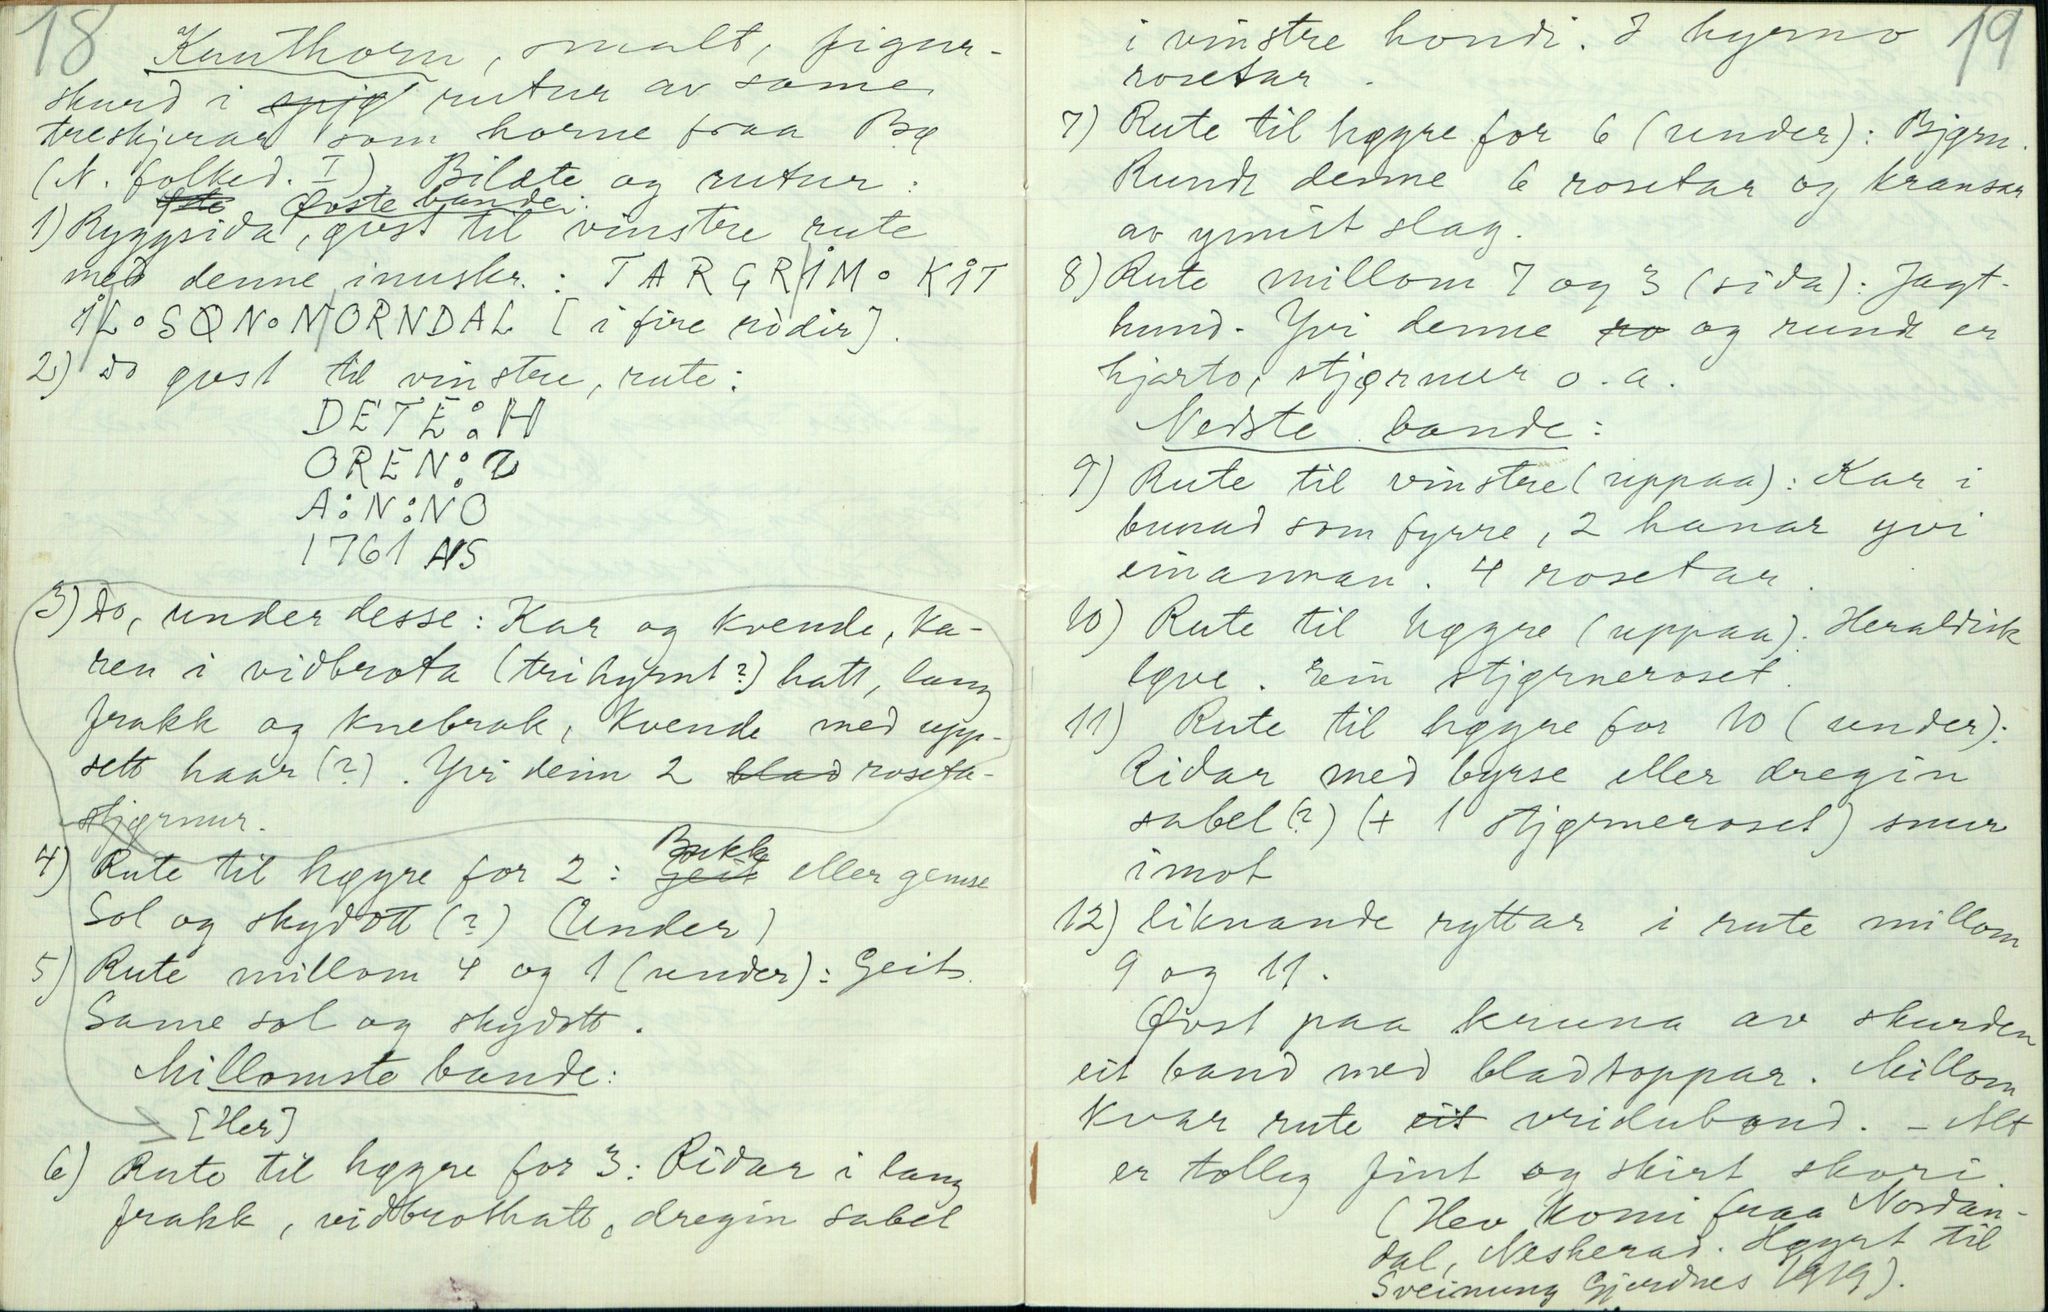 18
Knuthorn, smalt, figur-
skurd i rutur av same
treskjerar som horne fraa Bø
(N. folked. I). Bilæte og rutur:
Øvste bande:
1) Ryggsida, øvst til vinstre rute
med denne innskr.: TARGRIM∘ KIT
IL∘SØN∘NORNDAL [i fire ridir].
2) Do øvst til vinstre, rute:
DETE:H
OREN:
A:N:NO
1761 NS
3) Do, under desse: Kar og kvende, ka-
ren i vidbrota (trihyrnt?) hatt, lang
frakk og knebrok, kvende med upp-
sett haar (?). Yvi deim 2 blad roseta-
stjørnur.
4) Rute til høgre for 2: Bukk
Geit eller gemse
Sol og skydott (?) (Under)
5) Rute millom 4 og 1 (under): Geit.
Same sol og skydott.
Millomste bande:
[Her]
6) Rute til høgre for 3: Ridar i lang
frakk, vidbrothatt, dregin sabel
19
i vinstre hondi. I hyrno
rosetar.
7) Rute til høgre for 6 (under): Bjørn.
Rundt denne 6 rosetar og kransar
av ymist slag.
8) Rute millom 7 og 3 (sida): Jagt-
hund. Yvi denne ro og rundt er
hjarto, stjørnur o. a.
Nedste bande:
9) Rute til vinstre (uppaa): Kar i
bunad som fyrre, 2 hanar yvi
einannan. 4 rosetar.
10) Rute til høgre (uppaa). Heraldisk
løve. Ein stjørneroset.
11) Rute til høgre for 10 (under):
Ridar med byrse eller dregin
sabel (?) (+ 1 stjørneroset) snur
imot
12) liknande ryttar i rute millom
9 og 11.
Øvst paa kruna av skurden
eit band med bladtoppar. Millom
kvar rute eit vriduband. – Alt
er tolleg fint og skirt skori.
(Hev komi fraa Nordan-
dal, Nesherad. Høyrt til
Sveinung Gjerdnes 1919).